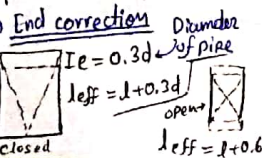 End correction
Diamder of pipe
Ie = 0.3d
leff = l+0.3d
open→
closed
leff = l+0.6